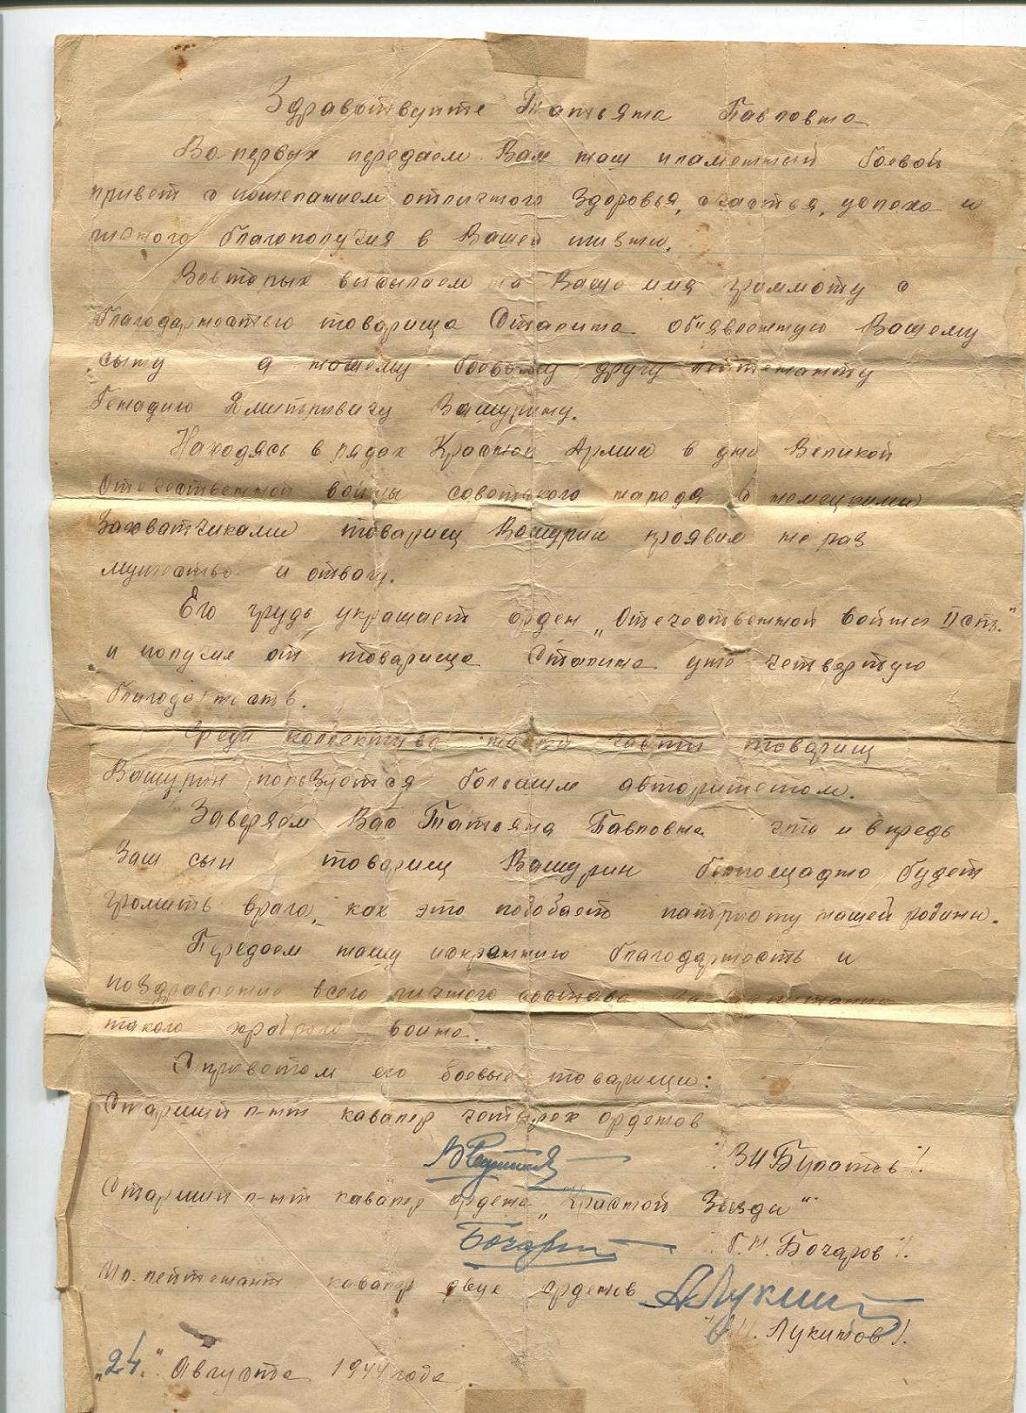 Здравствуйте Татьяна Павловна
Во первых передаем Вам наш пламенный боевой
привет с пожеланием отличного здоровья, счастья, успеха и
личного благополучия в Вашей жизни.
Вовторых высылаем на Ваше имя граммоту с
благодарностью товарища Сталина объявленную Вашему
сыну а нашему боевому другу лейтенанту
Генадию Дмитриевичу Вашурину.
Находясь в рядах Красной Армии в дни Великой
Отечественной войны советского народа с немецкими
захватчиками товарищ Вашурин проявил не раз
мужество и отвагу.
Его грудь украшает орден „Отечественной войны II ст."
и получил от товарища Сталина уже четвертую
благодарность.
Среди коллектива нашей части товарищ
Вашурин пользуется большим авторитетом.
Заверяем Вас Татьяна Павловна что и впредь
Ваш сын товарищ Вашурин беспощадно будет
громить врага, как это подобает патриоту нашей родины.
Передаем нашу искреннию благодарность и
поздравление всего личного состава за воспитание
такого храброго воина.
С приветом его боевые товарищи:
Старший л-нт кавалер четырех орденов
/В И Булатов/.
Старший л-нт кавалер ордена „Красной Звезды"
Бочаров /Г. Н. Бочаров/.
Мл. лейтенант кавалер двух орденов
Лукинов/.
„24." Августа 1944 года.